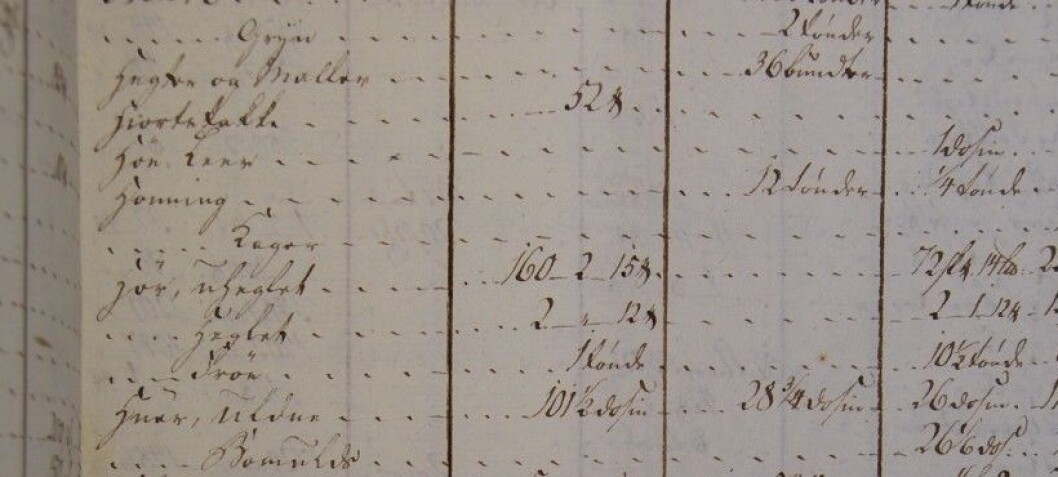 Gryn 2 tønder
Hegter og Maller 36 bundter
Hiortetakke 52 ℔
Höe Leer 1 dosin
Honning 12 tønder ¼ tønde
Kager
Hör, uheglet 160 2 15 ℔ 72
Heglet 2 " 12 ℔ 2 1 12 ℔
Fröe 1 tønde 10½ tønde
Huer, Uldne 101½ dosin 28¾ dosin 26 dosin
Bomulds dos: